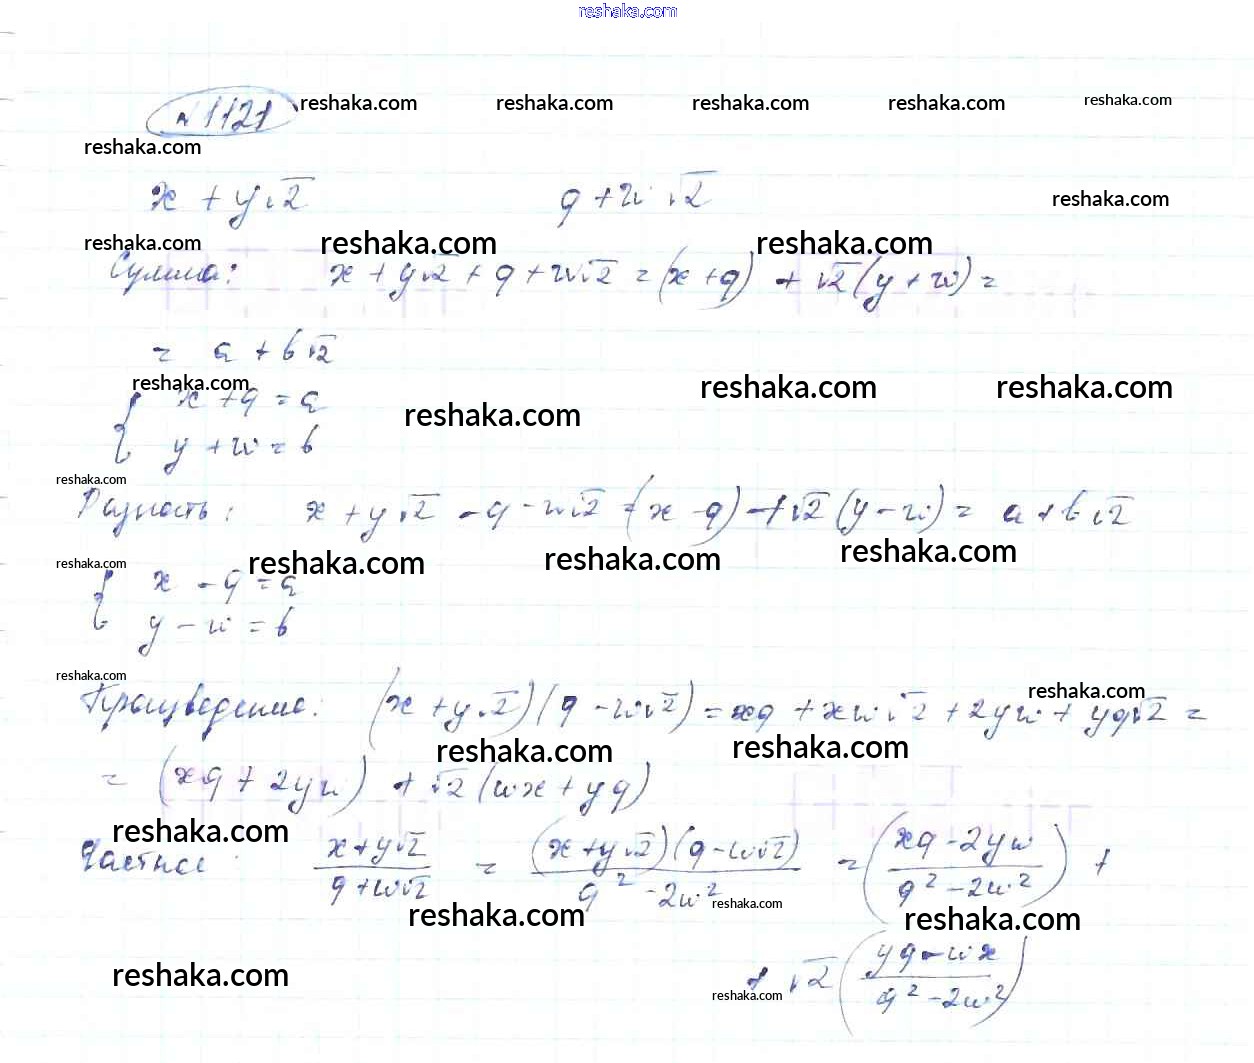 reshaka.com
№ 1121 reshaka.com reshaka.com reshaka.com reshaka.com reshaka.com
reshaka.com
x + y√2 q + w√2 reshaka.com
reshaka.com reshaka.com reshaka.com
Сумма: x + y√2 + q + w√2 = (x + q) + √2 (y + w) =
= a + b√2
reshaka.com reshaka.com reshaka.com
{ x + q = a
reshaka.com
y + w = b
reshaka.com
Разность: x + y√2 - q - w√2 = (x - q) + √2 (y - w) = a + b√2
reshaka.com reshaka.com reshaka.com reshaka.com
{ x - q = a
y - w = b
reshaka.com reshaka.com
Произведение: (x + y√2)(q - w√2) = xq + xw√2 + 2yw + yq√2 =
reshaka.com reshaka.com
= (xq + 2yw) + √2 (wx + yq)
reshaka.com
Частное: (x + y√2)/(q + w√2) = ((x + y√2)(q - w√2))/(q² - 2w²) = ((xq - 2yw)/(q² - 2w²)) +
reshaka.com reshaka.com reshaka.com
+ √2 ((yq - wx)/(q² - 2w²))
reshaka.com reshaka.com